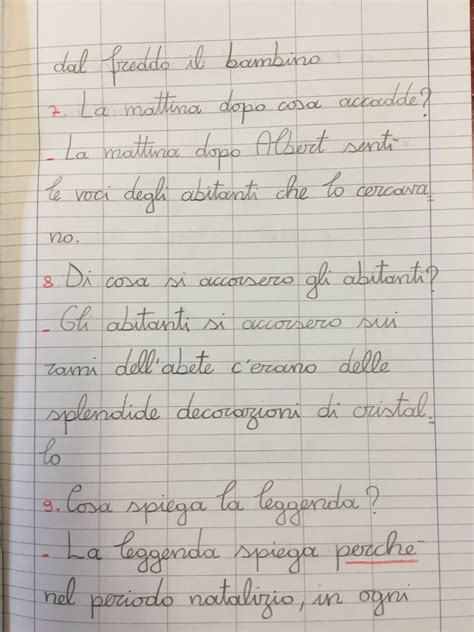 dal freddo il bambino
7. La mattina dopo cosa accadde?
- La mattina dopo Albert senti
le voci degli abitanti che lo cercava_
no.
8. Di cosa si accorsero gli abitanti?
- Gli abitanti si accorsero sui
rami dell'abete c'erano delle
splendide decorazioni di cristal_
lo
9. Cosa spiega la leggenda?
- La leggenda spiega perche
nel periodo natalizio, in ogni